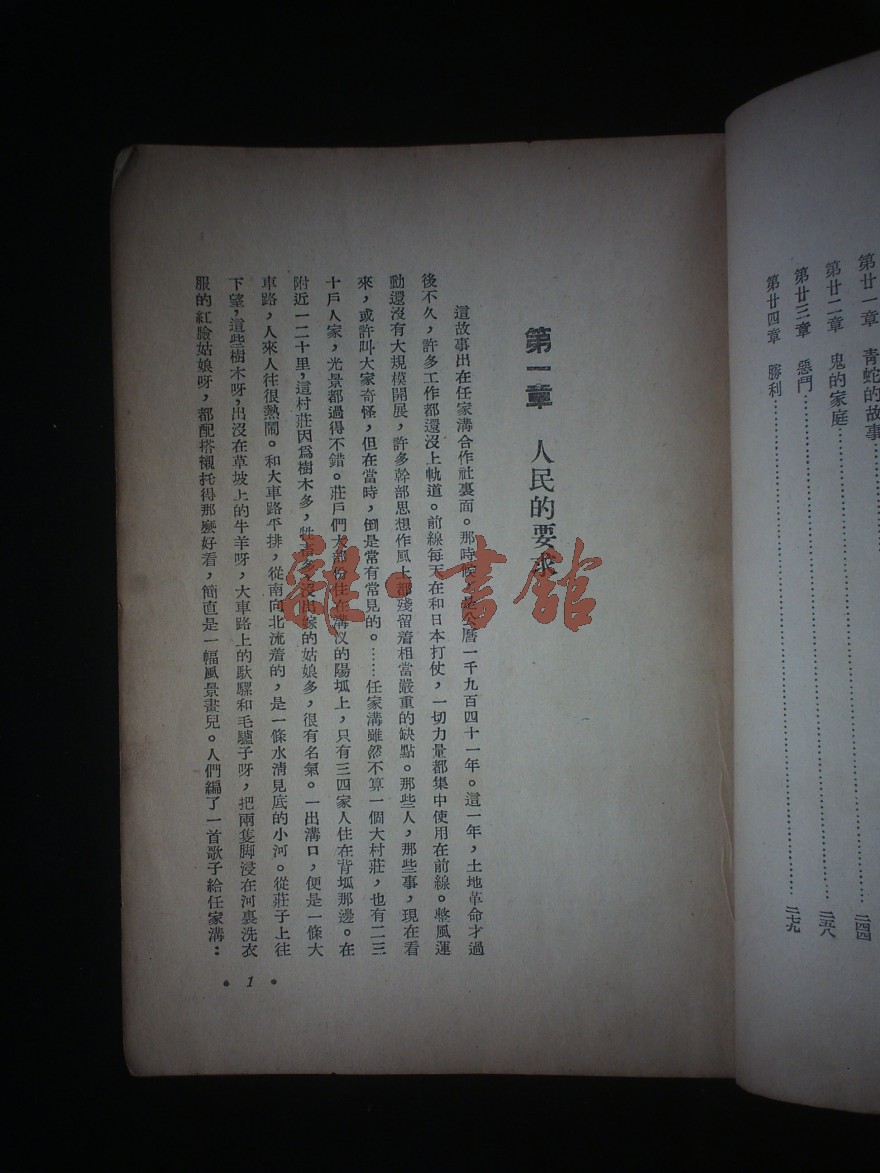 第廿一章　青蛇的故事………二四四
第廿二章　鬼的家庭………二五八
第廿三章　惡鬥………
第廿四章　勝利………二七九
第一章　人民的要求
這故事出在任家溝合作社裏面。那時候，是公曆一千九百四十一年。這一年，土地革命才過
後不久，許多工作都還沒上軌道。前線每天在和日本打仗，一切力量都集中使用在前線。整風運
動還沒有大規模開展，許多幹部思想作風上都殘留着相當嚴重的缺點。那些人，那些事，現在看
來，或許叫大家奇怪，但在當時，倒是常有常見的。……任家溝雖然不算一個大村莊，也有二三
十戶人家，光景都過得不錯。莊戶們大部份住在溝仪的陽坬上，只有三四家人住在背坬那邊。在
附近一二十里，這村莊因爲樹木多，牲畜多，沒出嫁的姑娘多，很有名氣。一出溝口，便是一條大
車路，人來人往很熱鬧。和大車路平排，從南向北流着的，是一條水淸見底的小河。從莊子上往
下望，這些樹木呀，出沒在草坡上的牛羊呀，大車路上的馱騾和毛驢子呀，把兩隻脚浸在河裏洗衣
服的紅臉姑娘呀，都配搭襯托得那麽好看，簡直是一幅風景畫兒。人們編了一首歌子給任家溝：
• 1 •
雜·書舘